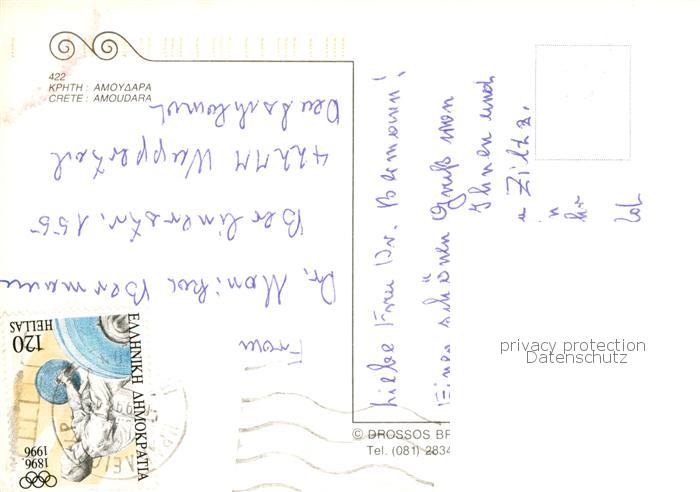 422
ΚΡΗΤΗ : ΑΜΟΥΔΑΡΑ
CRETE : AMOUDARA
Frau
Dr. Monika Bermann
Berlinerstr. 155
Wuppertal
Deutschland
Liebe Frau Dr. Bermann!
Einen schönen Gruß von
Ihnen und
Ziltz.
privacy protection
Datenschutz
© DROSSOS BR
Tel. (081) 2834
ΕΛΛΗΝΙΚΗ ΔΗΜΟΚΡΑΤΙΑ
HELLAS
120
1896
1996